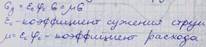 G_д = ε_c φ_c G = μG
ε_c - коэффициент сужения струи
μ = ε_c φ_c - коэффициент расхода